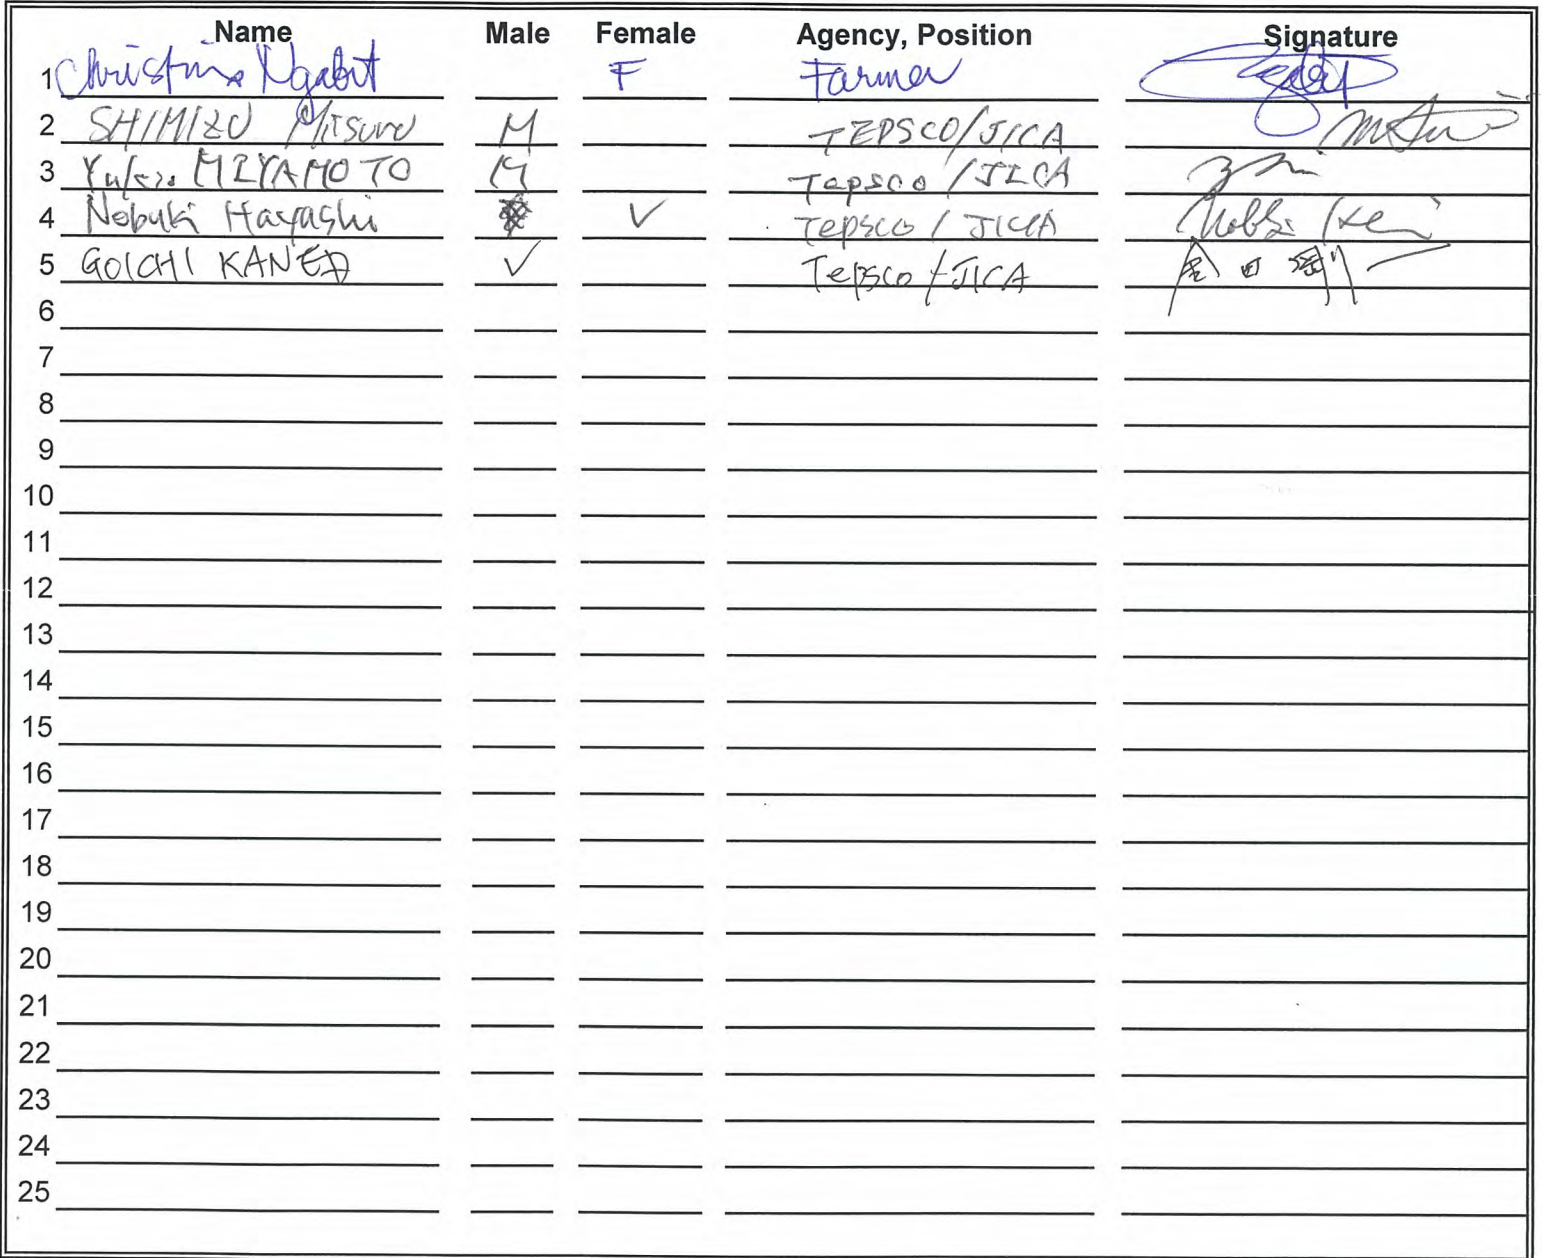 Name Male Female Agency, Position Signature
1 Christina Ngabit F Farmer
2 SHIMIZU Mitsuru M TEPSCO/JICA
3 MIYAMOTO M Tepsco /JICA
4 Nobuki Hayashi ✓ Tepsco / JICA
5 GOICHI KANEDA ✓ Tepsco / JICA 金田剛一
6
7
8
9
10
11
12
13
14
15
16
17
18
19
20
21
22
23
24
25